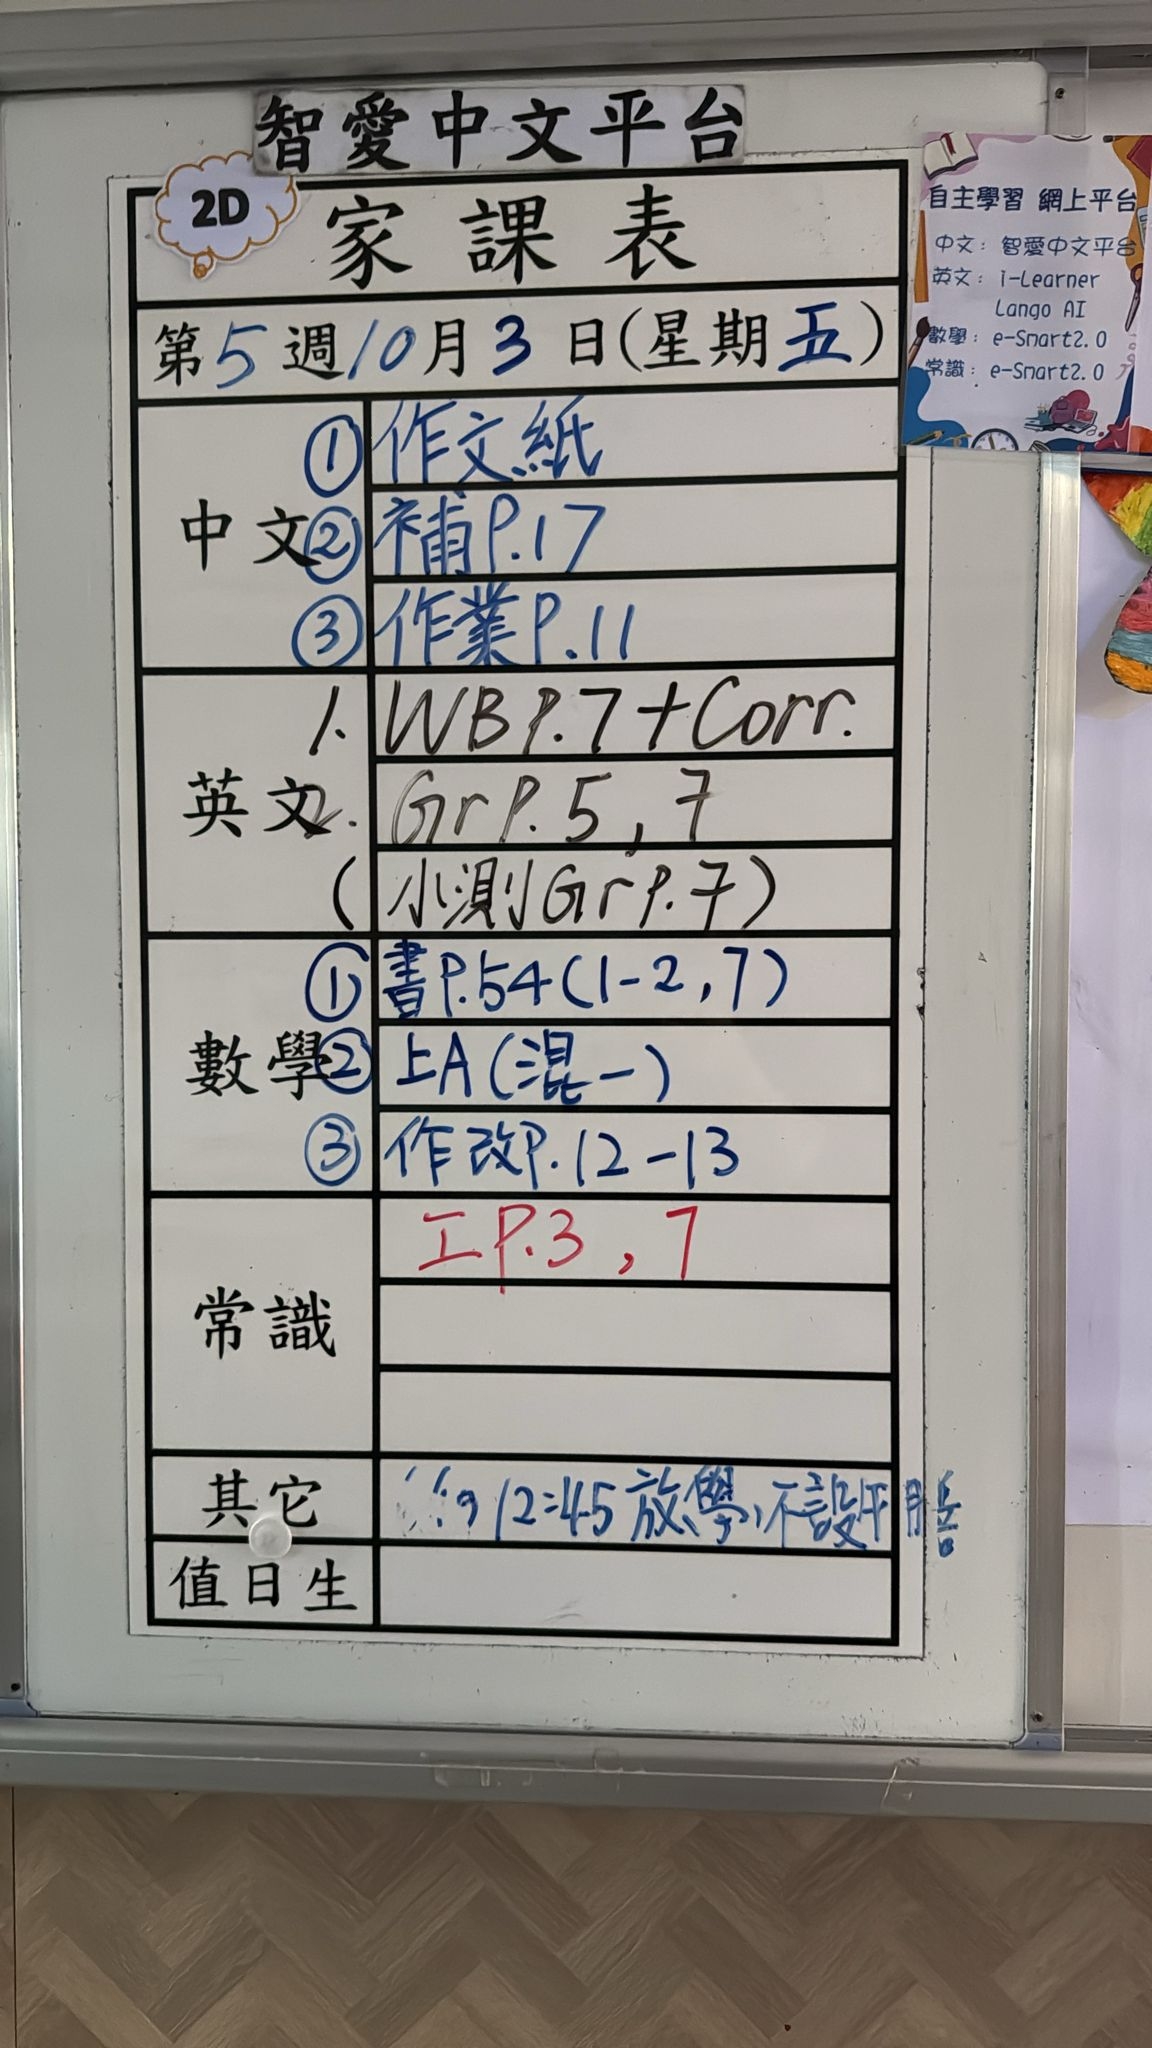 智愛中文平台
2D
家課表
第5週10月3日(星期五)
中文
① 作文紙
② 補P.17
③ 作業P.11
英文
1. WB P.7+Corr.
2. Gr P.5, 7
(小測Gr P.7)
數學
① 書P.54(1-2,7)
② 上A(混一)
③ 作改P.12-13
常識
工P.3, 7
其它
12:45放學,不設午膳
值日生
自主學習 網上平台
中文: 智愛中文平台
英文: i-Learner
Lango AI
數學: e-Smart2.0
常識: e-Smart2.0